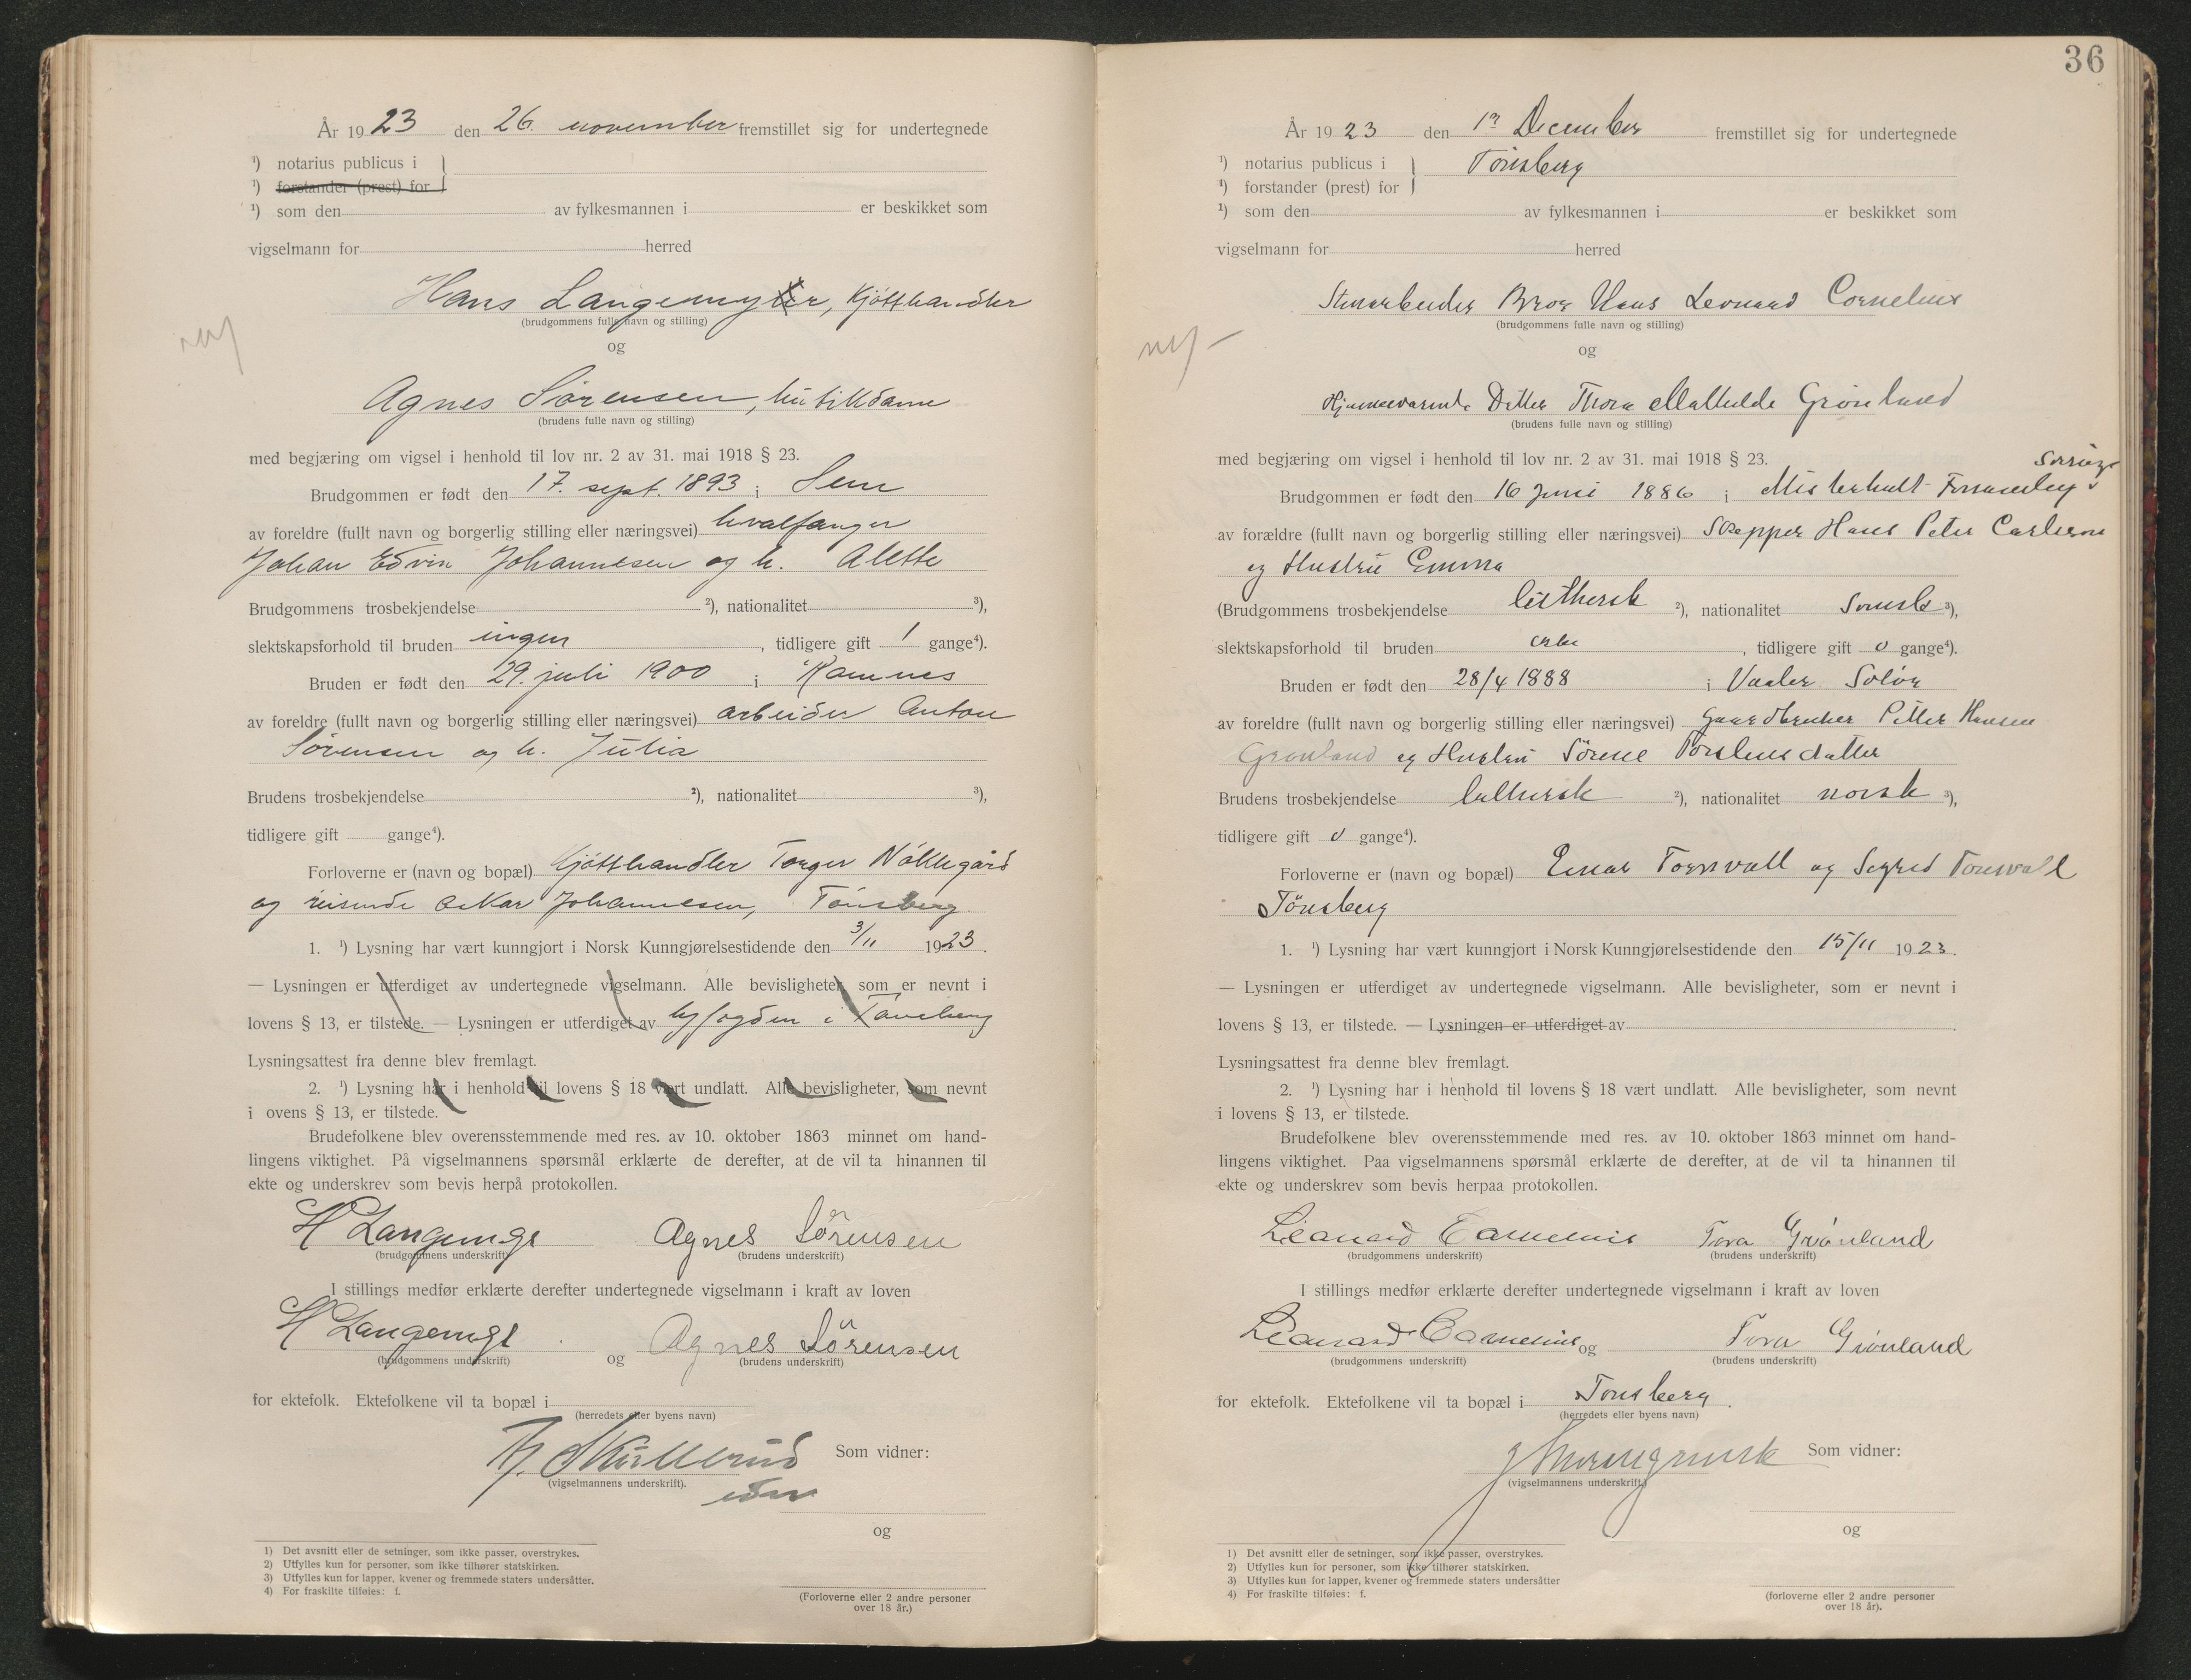 År 1923 den 26. november fremstillet sig for undertegnede
¹) notarius publicus i
¹) forstander (prest) for
¹) som den av fylkesmannen i er beskikket som
vigselmann for herred
Hans Langemyr, Kjøtthandler
(brudgommens fulle navn og stilling)
og
Agnes Sørensen, butikdame
(brudens fulle navn og stilling)
med begjæring om vigsel i henhold til lov nr. 2 av 31. mai 1918 § 23.
Brudgommen er født den 17. sept. 1893 i Sem
av foreldre (fullt navn og borgerlig stilling eller næringsvei) hvalfanger
Johan Edvin Johannesen og h. Alette
Brudgommens trosbekjendelse ²), nationalitet ³),
slektskapsforhold til bruden ingen, tidligere gift 1 gange⁴).
Bruden er født den 29. juli 1900 i Ramnes
av foreldre (fullt navn og borgerlig stilling eller næringsvei) arbeider Anton
Sørensen og h. Julia
Brudens trosbekjendelse ²), nationalitet ³),
tidligere gift gange⁴).
Forloverne er (navn og bopæl) Kjøtthandler Torger Nøklegård
og reisende Oskar Johannesen, Tønsberg
1. ¹) Lysning har vært kunngjort i Norsk Kunngjørelsestidende den 3/11 1923.
— Lysningen er utferdiget av undertegnede vigselmann. Alle bevisligheter, som er nevnt i
lovens § 13, er tilstede. — Lysningen er utferdiget av byfogden i Tønsberg
Lysningsattest fra denne blev fremlagt.
2. ¹) Lysning har i henhold til lovens § 18 vært undlatt. Alle bevisligheter, som nevnt
i ovens § 13, er tilstede.
Brudefolkene blev overensstemmende med res. av 10. oktober 1863 minnet om hand-
lingens viktighet. På vigselmannens spørsmål erklærte de derefter, at de vil ta hinannen til
ekte og underskrev som bevis herpå protokollen.
H Langemyr Agnes Sörensen
(brudgommens underskrift) (brudens underskrift)
I stillings medfør erklærte derefter undertegnede vigselmann i kraft av loven
H Langemyr og Agnes Sörensen
(brudgommens underskrift) (brudens underskrift)
for ektefolk. Ektefolkene vil ta bopæl i
(herredets eller byens navn)
Skullerud Som vidner:
(vigselmannens underskrift).
og
1) Det avsnitt eller de setninger, som ikke passer, overstrykes.
2) Utfylles kun for personer, som ikke tilhører statskirken.
3) Utfylles kun for lapper, kvener og fremmede staters undersåtter.
4) For fraskilte tilføies: f.
(Forloverne eller 2 andre personer
over 18 år.)
36
År 1923 den 1ª December fremstillet sig for undertegnede
¹) notarius publicus i Tönsberg
¹) forstander (prest) for
¹) som den av fylkesmannen i er beskikket som
vigselmann for herred
Stenarbeider Bror Hans Leonard Cornelius
(brudgommens fulle navn og stilling)
og
Hjemmeværende Datter Thora Mathilde Grönland
(brudens fulle navn og stilling)
med begjæring om vigsel i henhold til lov nr. 2 av 31. mai 1918 § 23.
Sverige
Brudgommen er født den 16 Juni 1886 i Misterhult
av forældre (fullt navn og borgerlig stilling eller næringsvei) Skepper Hans Peter Carlsson
og Hustru Emma
(Brudgommens trosbekjendelse luthersk ²), nationalitet svensk ³),
slektskapsforhold til bruden ikke, tidligere gift 0 gange⁴).
Bruden er født den 28/4 1888 i Vaaler Solör
av foreldre (fullt navn og borgerlig stilling eller næringsvei) Gaardbruker Petter Hansen
Grønland og Hustru Sörene Torstensdatter
Brudens trosbekjendelse luthersk ²), nationalitet norsk ³),
tidligere gift 0 gange⁴).
Forloverne er (navn og bopæl) Einar Tornvall og Sigrid Tornvall
Tönsberg
1. ¹) Lysning har vært kunngjort i Norsk Kunngjørelsestidende den 15/11 1923.
— Lysningen er utferdiget av undertegnede vigselmann. Alle bevisligheter, som er nevnt i
lovens § 13, er tilstede. — Lysningen er utferdiget av
Lysningsattest fra denne blev fremlagt.
2. ¹) Lysning har i henhold til lovens § 18 vært undlatt. Alle bevisligheter, som nevnt
i lovens § 13, er tilstede.
Brudefolkene blev overensstemmende med res. av 10. oktober 1863 minnet om hand-
lingens viktighet. Paa vigselmannens spørsmål erklærte de derefter, at de vil ta hinannen til
ekte og underskrev som bevis herpaa protokollen.
Leonard Cornelius Tora Grønland
(brudgommens underskrift) (brudens underskrift)
I stillings medfør erklærte derefter undertegnede vigselmann i kraft av loven
Leonard Cornelius og Tora Grønland
(brudgommens underskrift) (brudens underskrift)
for ektefolk. Ektefolkene vil ta bopæl i Tönsberg.
(herredets eller byens navn)
Som vidner:
(vigselmannens underskrift.)
og
1) Det avsnitt eller de setninger, som ikke passer, overstrykes.
2) Utfylles kun for personer, som ikke tilhører statskirken.
3) Utfylles kun for lapper, kvener og fremmede staters undersåtter
4) For fraskilte tilføies: f.
(forloverne eller 2 andre personer
over 18 år).